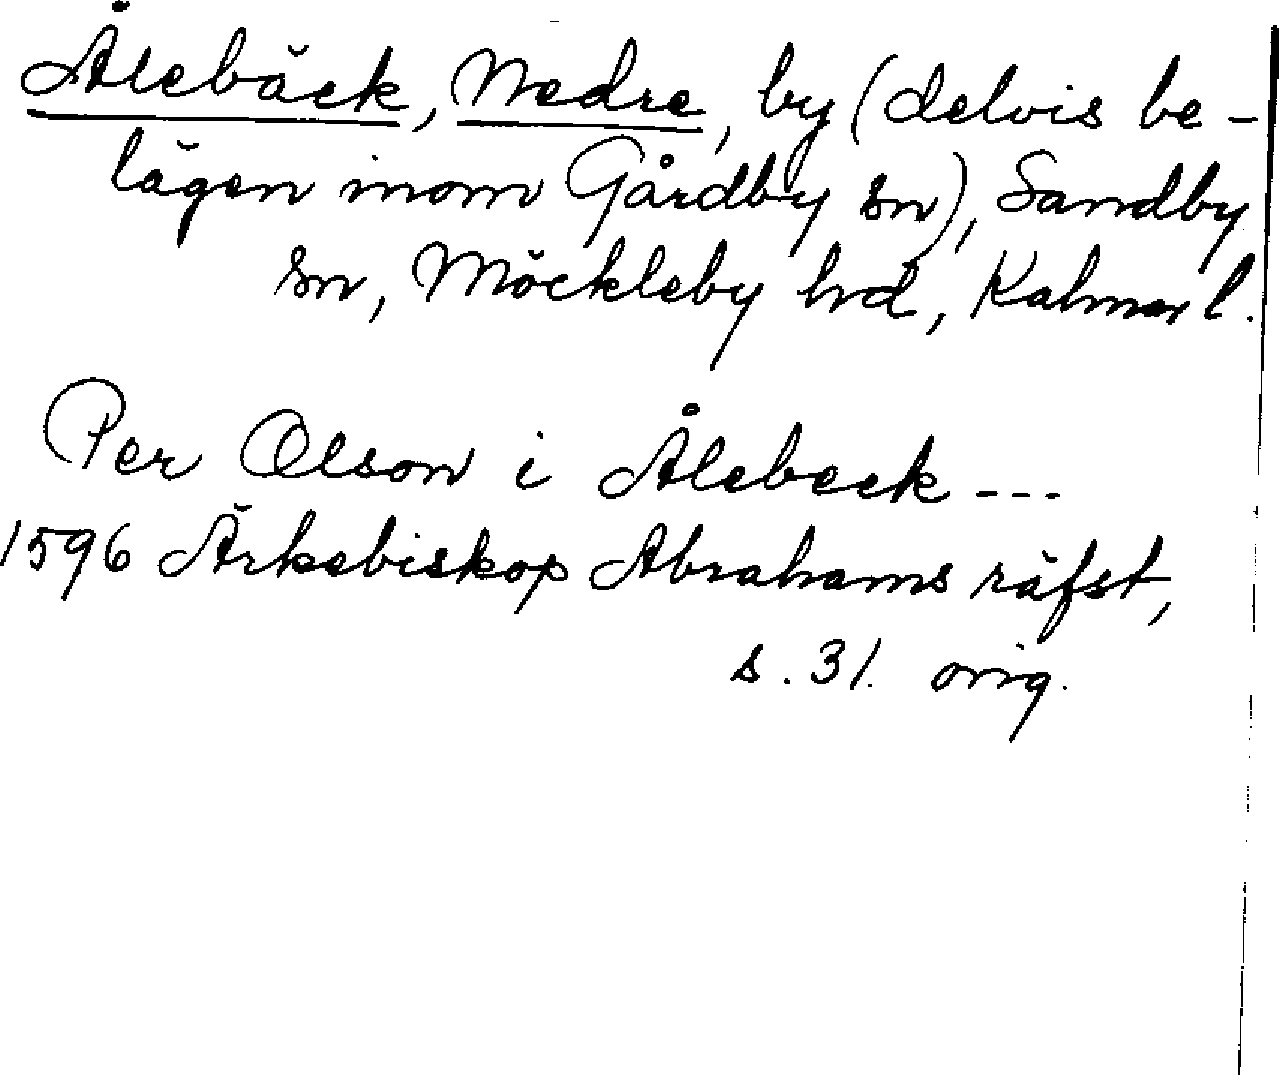 Ålebäck, Nedre, by (delvis be-
lägen inom Gårdby sn), Sandby
sn, Möckleby hd, Kalmar l.
Per Olson i Ålebeek ---
1596 Ärkebiskop Abrahams räfst,
s. 31. orig.